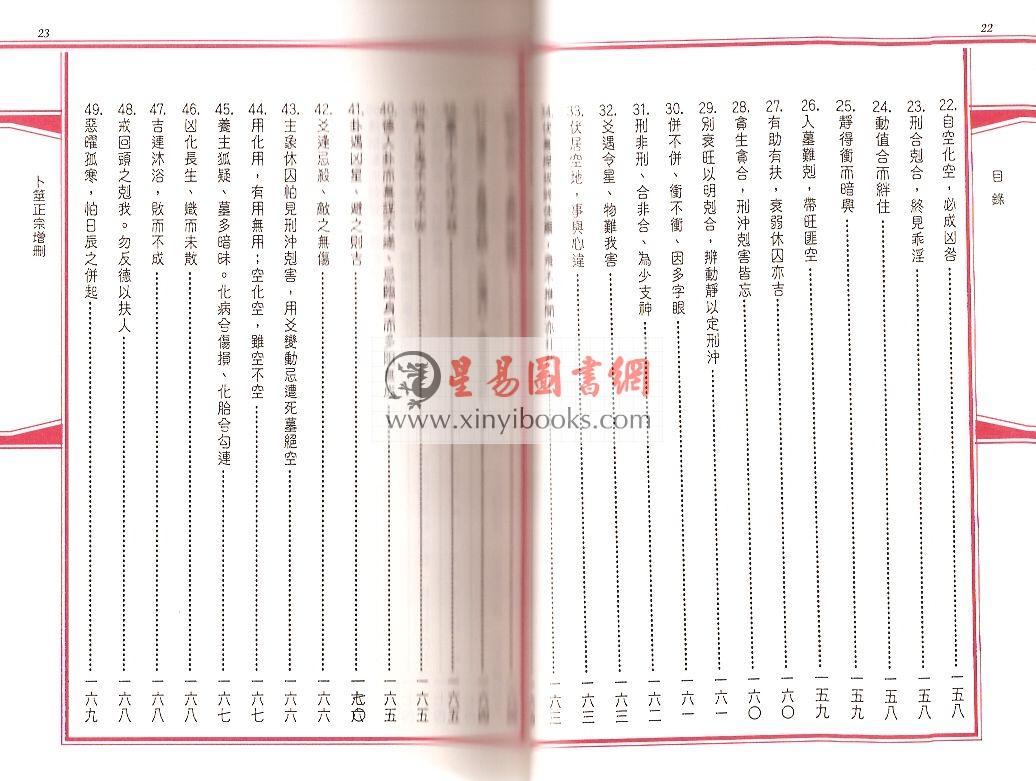 22
目錄
22. 自空化空，必成凶咎……一五八
23. 刑合剋合，終見乖淫……一五八
24. 動值合而絆住……一五八
25. 靜得衝而暗興……一五九
26. 入墓難剋，帶旺匪空……一五九
27. 有助有扶，衰弱休囚亦吉……一六〇
28. 貪生貪合，刑沖剋害皆忘……一六〇
29. 別衰旺以明剋合，辨動靜以定刑沖……一六一
30. 併不併、衝不衝、因多字眼……一六一
31. 刑非刑、合非合、為少支神……一六二
32. 爻遇令星、物難我害……一六三
33. 伏居空地，事與心違……一六三
34.
一六三
星易圖書網
www.xinyibooks.com
23
40.
一六五
41. 卦遇凶星、避之則吉
42. 爻逢忌殺、敵之無傷……一六六
43. 主象休囚怕見刑沖剋害，用爻變動忌遭死墓絕空……一六六
44. 用化用，有用無用；空化空，雖空不空……一六七
45. 養主狐疑、墓多暗昧。化病兮傷損、化胎兮勾連……一六七
46. 凶化長生、熾而未散……一六八
47. 吉連沐浴，敗而不成……一六八
48. 戒回頭之剋我。勿反德以扶人……一六八
49. 惡曜孤寒，怕日辰之併起……一六九
卜筮正宗增刪